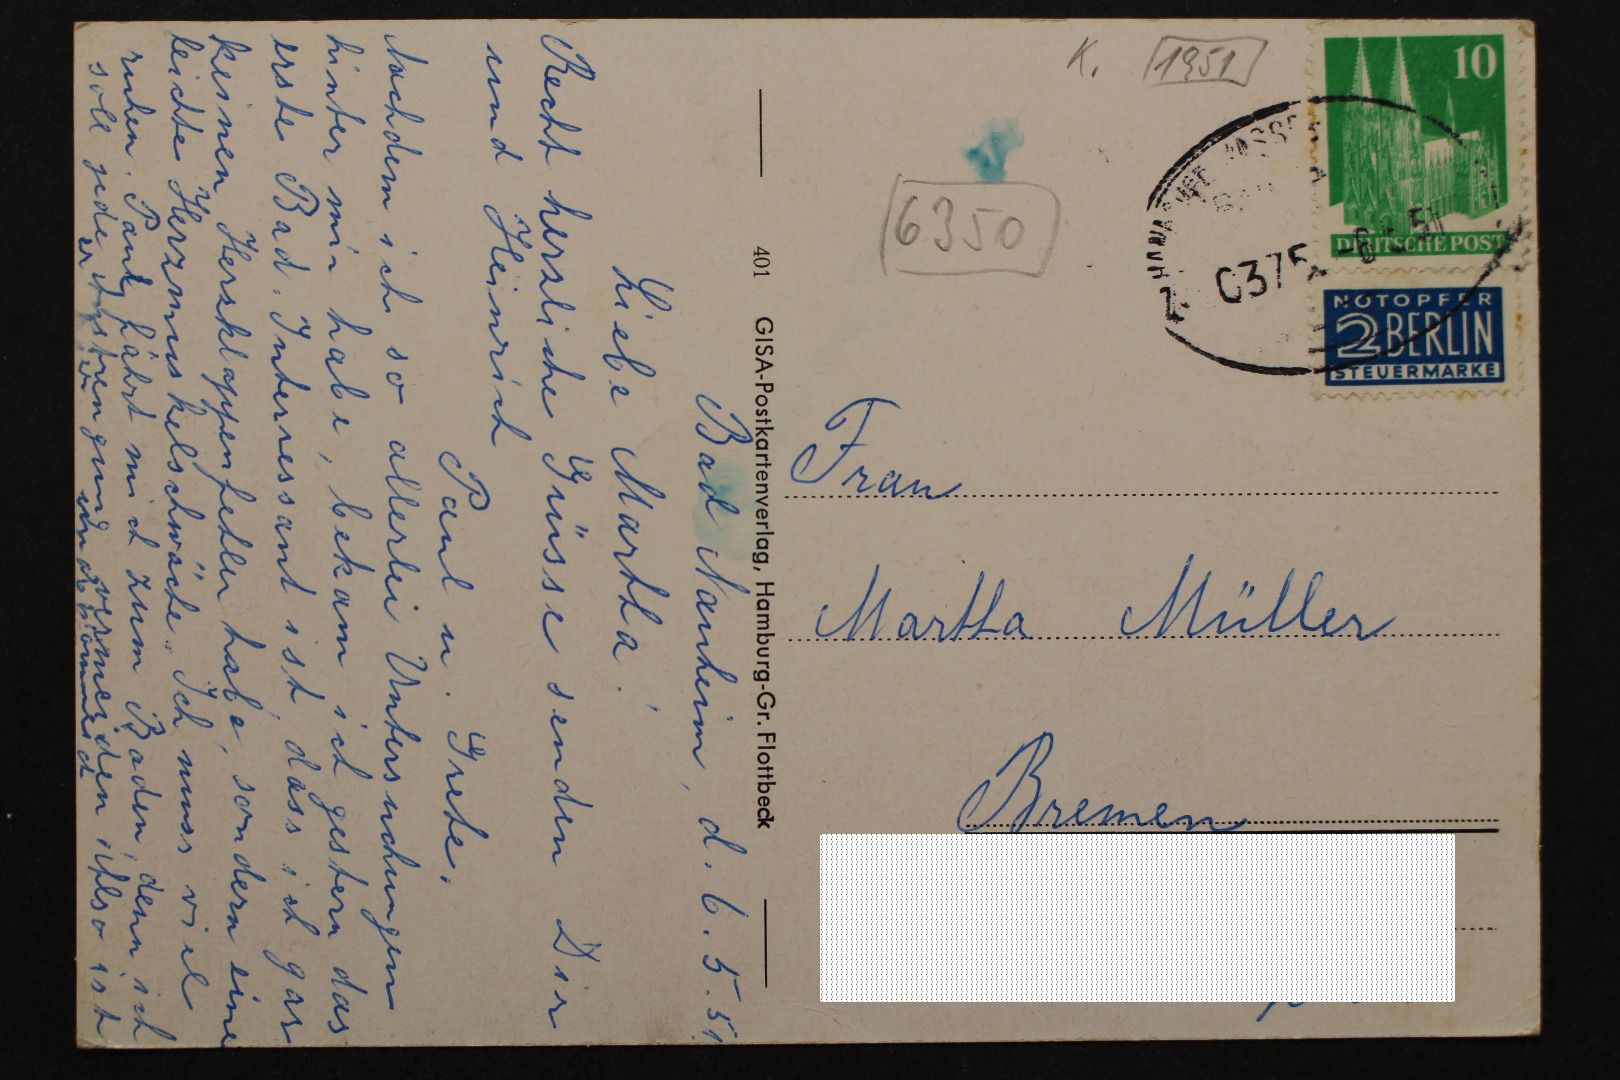 Bad Nauheim, d. 6.5.51
Liebe Martha!
Recht herzliche Grüsse senden Dir
und Heinrich
Paul u. Grete.
Nachdem ich so allerlei Untersuchungen
hinter mir habe, bekam ich gestern das
erste Bad. Interressant ist, dass ich gar
keinen Herzklappenfehler habe, sondern eine
leichte Herzmuskelschwäche. Ich muss viel
ruhen. Paul fährt mich zum Baden denn ich
soll jede Anstrengung vermeiden Also ist
er
401 GISA-Postkartenverlag, Hamburg-Gr. Flottbeck
K. 1951
6350
10
DEUTSCHE POST
NOTOPFER
2 BERLIN
STEUERMARKE
Frau
Martha Müller
Bremen